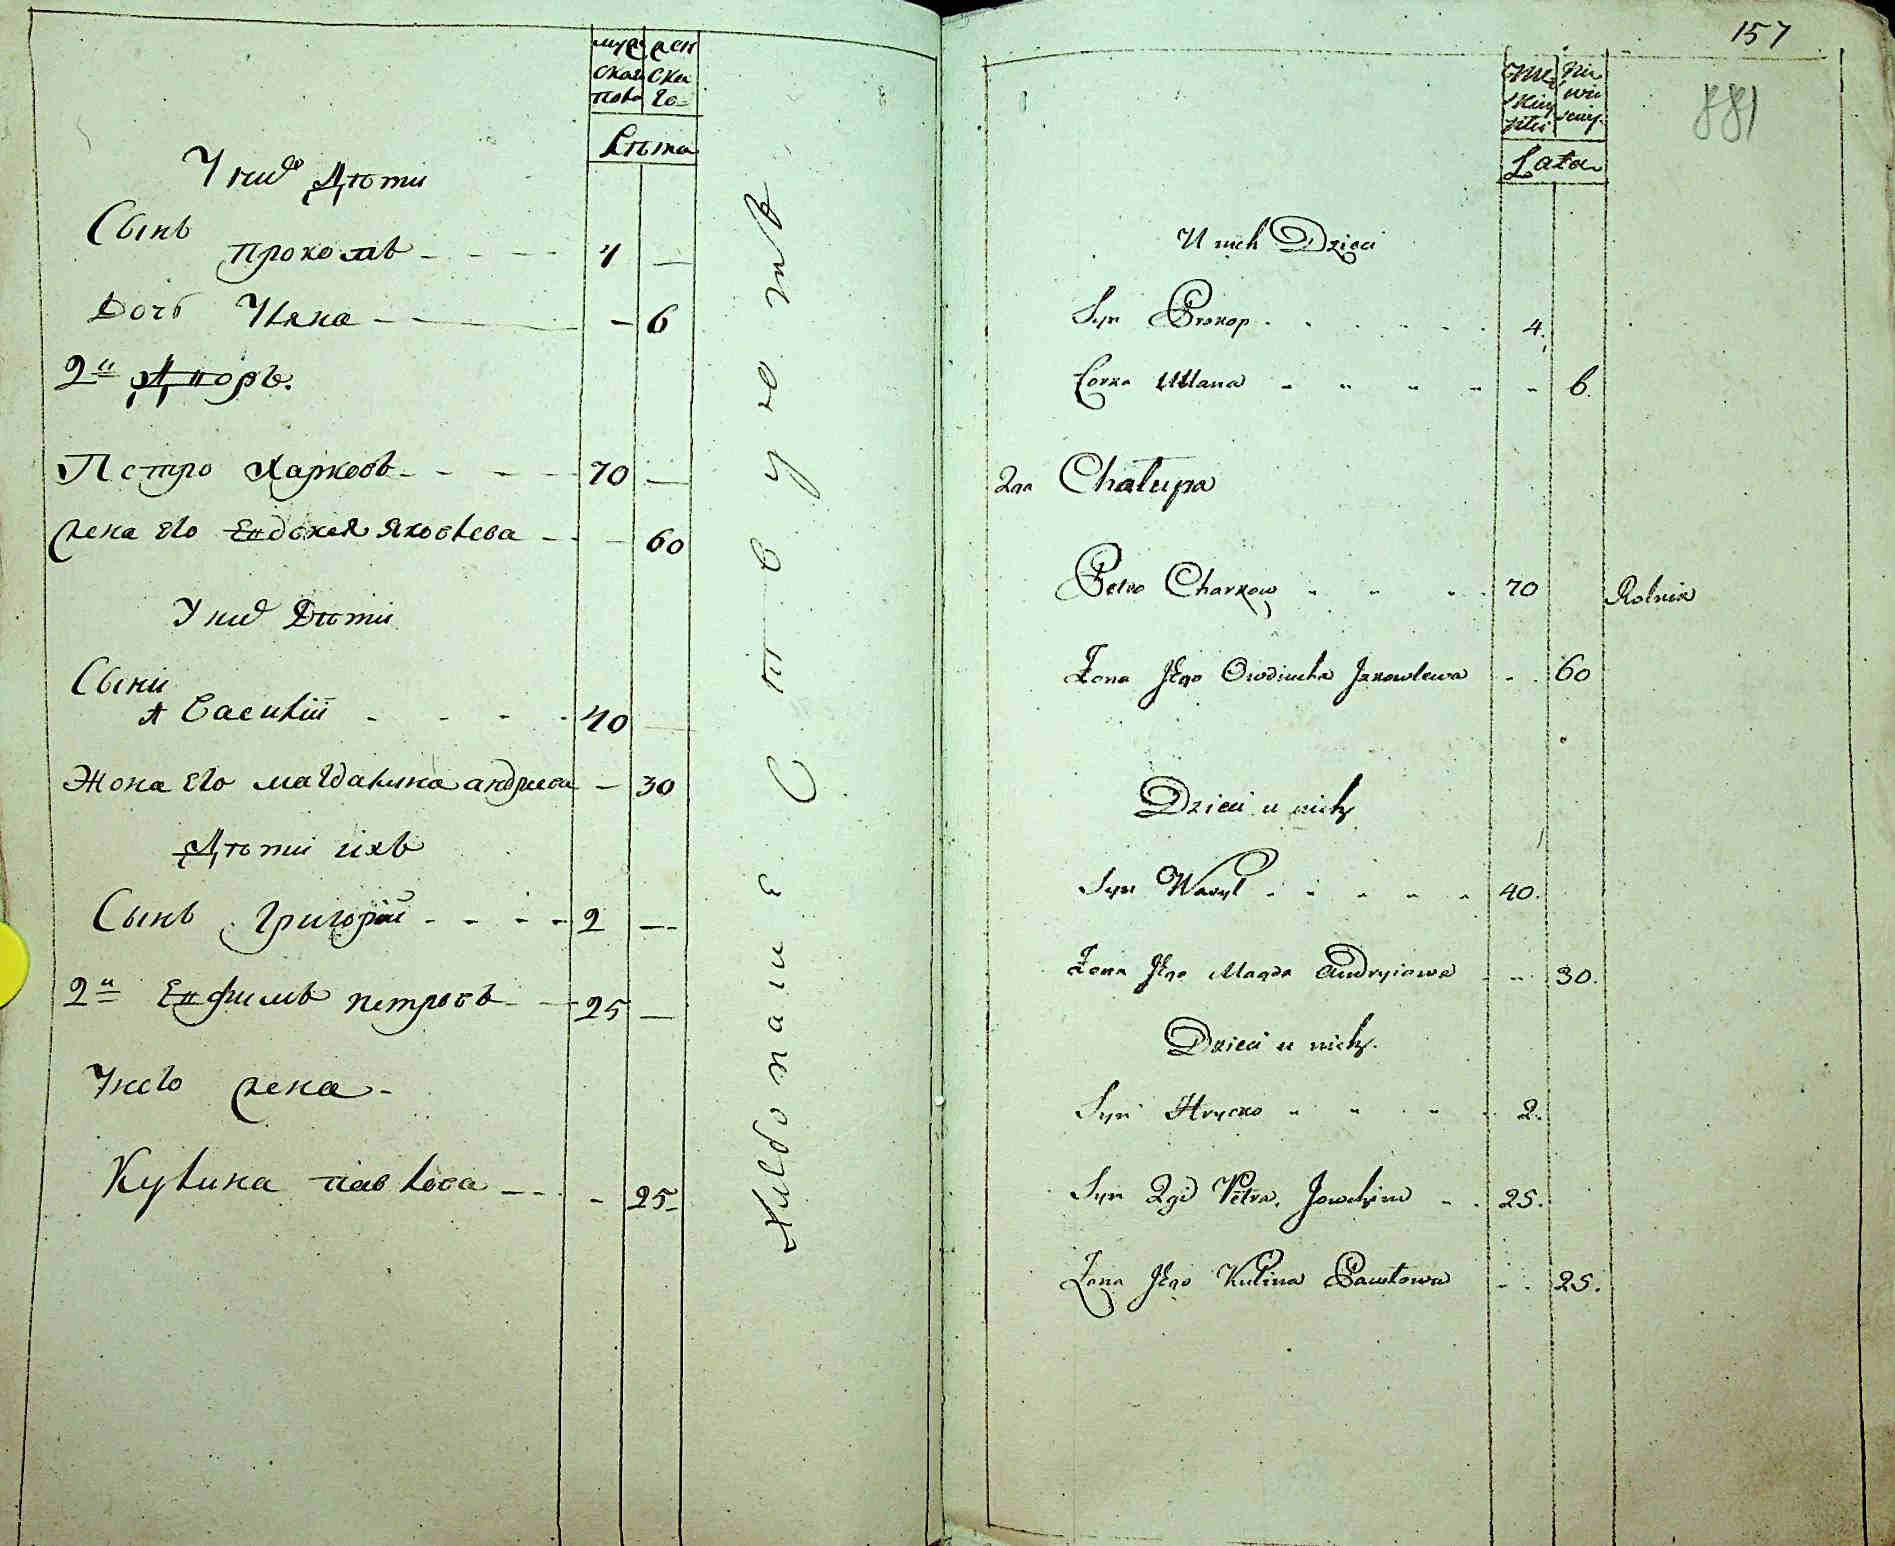 мужеска пола
женскаго
Лѣта
У них Дѣти
Сынъ
Прокопъ - - - - 4 —
Дочь Уляна - - — 6
2й Дворъ.
Петро Харковъ - - - - 70 —
жена его Евдокея Яковлева - - 60
У них Дѣти
Сыни
А Василій - - - - 40 —
Жона его Магдалина Андриева — 30
Дѣти ихъ
Сынъ Григорій - - - - 2 —
2й Евфимъ Петровъ - - 25 —
У него жена -
Кулина Павлова - - - 25
Хлебопашествуютъ
157
881
męskiey płci
niewieściey
Lata
U nich Dzieci
Syn Prokop 4.
Corka Ulana 6.
2ga Chałupa
Petro Charkow 70 Rolnik
Żona Jego Owdiucha Jakowlewa 60
Dzieci u nich
Syn Wasyl 40.
Żona Jego Magda Andryiowa 30.
Dzieci u nich.
Syn Hrycko 2.
Syn 2gi Petra, Jowchim 25.
Żona Jego Kulina Pawłowa 25.